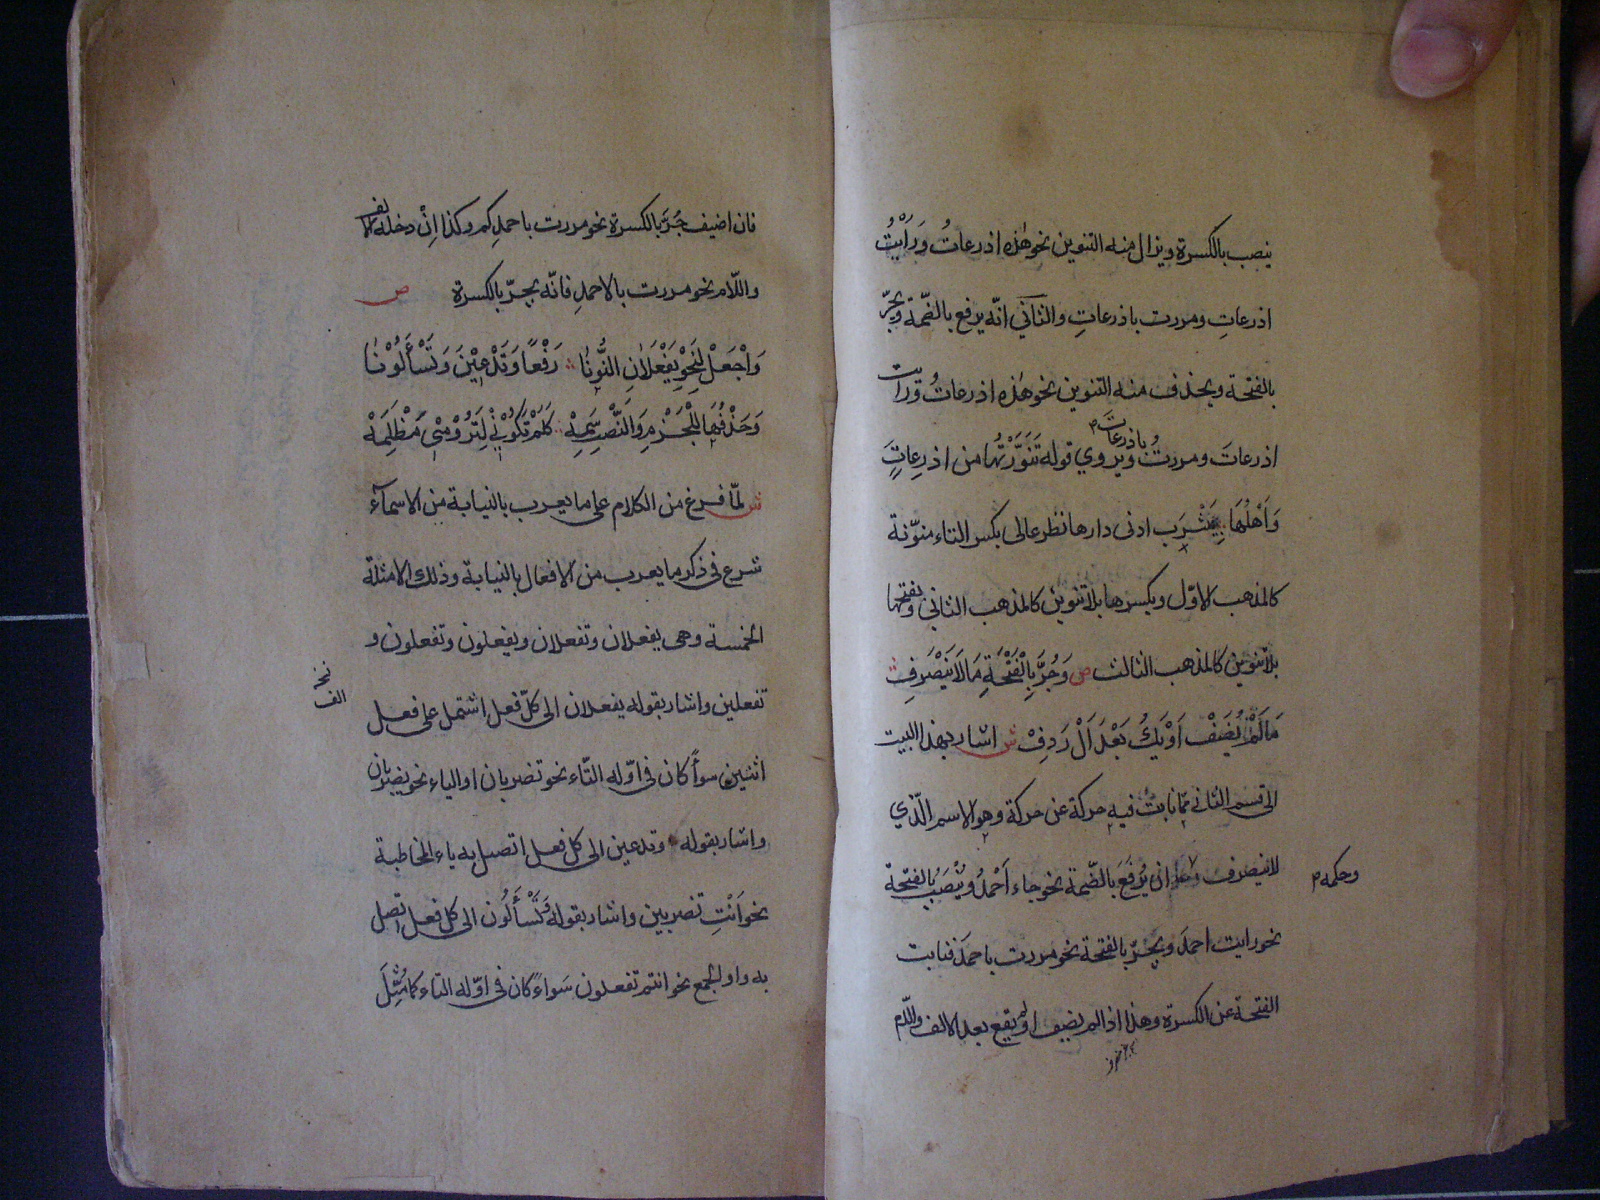 ينصب بالكسرة ويزال منه التنوين نحو هذه اذرعاتُ وَرَاَيْتُ
اذرعاتِ ومررت باذرعاتِ والثاني انّه يرفع بالضمّة ويجرّ
بالفتحة ويحذف منه التنوين نحو هذه اذرعاتُ ورايت
اذرعاتَ ومررتُ باذرعاتَ ويروي قوله تَنَوَّرْتُها من اذرِعاتٍ
وَاَهْلُهَا بِيَثْرِبَ ادنى دارها نظر عالى بكسر التاء منوّنة
كالمذهب الاوّل وبكسرها بلا تنوين كالمذهب الثاني وبفتحها
بلا تنوين كالمذهب الثالث ص وَجُرَّ بِالْفَتْحَةِ مَا لَا يَنْصَرِفْ
مَا لَمْ يُضَفْ اَوْ يَكُ بَعْدَ اَلْ رَدِفْ ش اشار بهذا البيت
الى قسم الثاني ممّا نابتْ فيه حركة عن حركة وهو الاسم الّذي
لا ينصرف وحكمه ان يُرْفَعَ بالضّمة نحو جاء اَحْمَدُ ويُنْصَبُ بالفتحة
نحو رايت احمدَ ويُجرّ بالفتحة نحو مررت باحمدَ فنابت
الفتحة عن الكسرة وهذا اذا لم يضف او لم يقع بعد الالف واللّام
فان اضيف جُرّ بالكسرة نحو مررت باحمدِكم وكذا اِنْ دخله الالف
واللّام نحو مررت بالاحمدِ فانّه يجرّ بالكسرة ص
وَاجْعَلْ لِنَحْوِ يَفْعَلَانِ النُّونَا رَفْعًا وَتَدْعِيْنَ وَتَسْأَلُوْنَا
وَحَذْفُهَا لِلْجَزْمِ وَالنَّصْبِ سِمَهْ كَلَمْ تَكُوْنِي لِتَرُوْمِيْ مَظْلِمَهْ
ش لمّا فرغ من الكلام على ما يعرب بالنيابة من الاسماء
شرع في ذكر ما يعرب من الافعال بالنيابة وذلك الامثلة
الخمسة وهى يفعلان وتفعلان ويفعلون وتفعلون و
تفعلين واشار بقوله يفعلان الى كلّ فعل اشتمل على فعل
الف
اثنين سواءً كان في اوّله التّاء نحو تضربان او الياء نحو يضربان
واشار بقوله وتدعين الى كل فعل اتصل به ياء المخاطبة
نحو اَنْتِ تضربين واشار بقوله وَتَسْأَلُون الى كل فعل اتصل
به واو الجمع نحو انتم تفعلون سَواءً كان في اوّله التاء كما مُثِّلَ